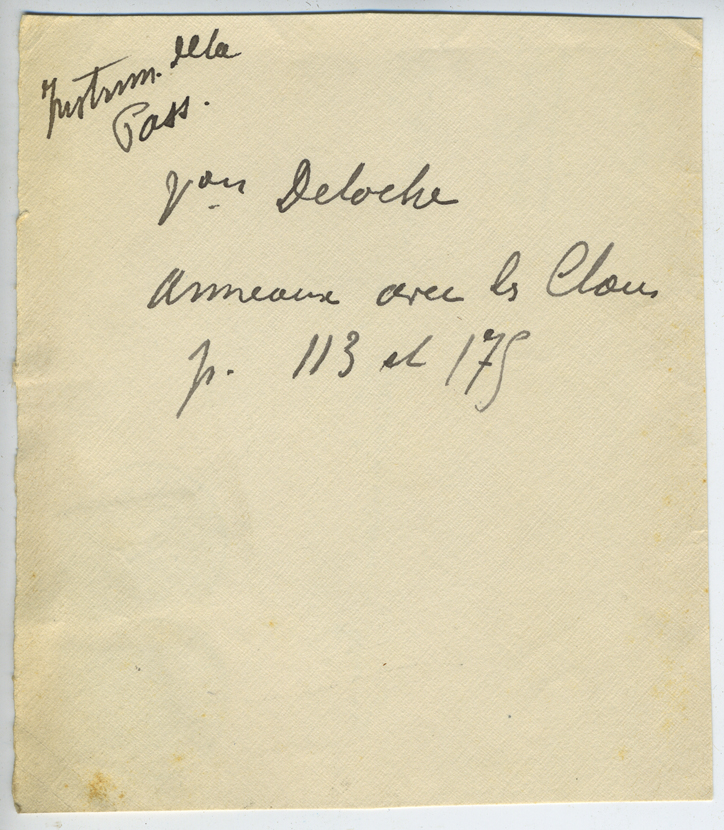 Instrum. della
Pass.
Deloche
anneaux avec les Clous
p. 113 et 175